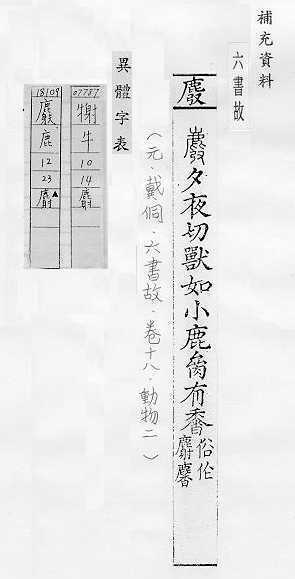 補充資料
六書故
夕夜切獸如小鹿有香
俗作麝
(元.戴侗.六書故.卷十八.動物二)
異體字表
07787
牛
10
14
麝
18109
鹿
12
23
麝▲